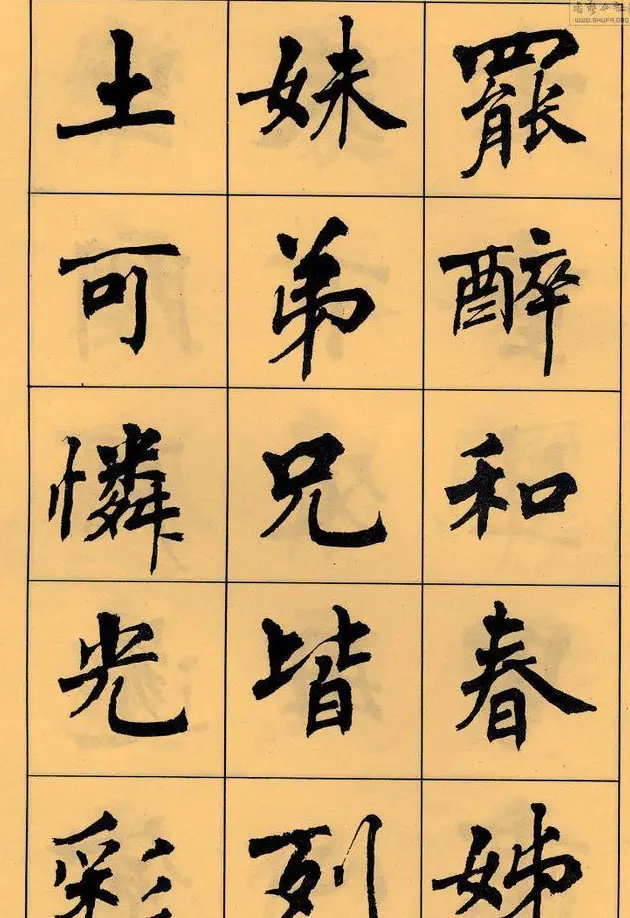 罷醉和春姊
妹弟兄皆列
土可憐光彩
WWW.SHUFA.ORG